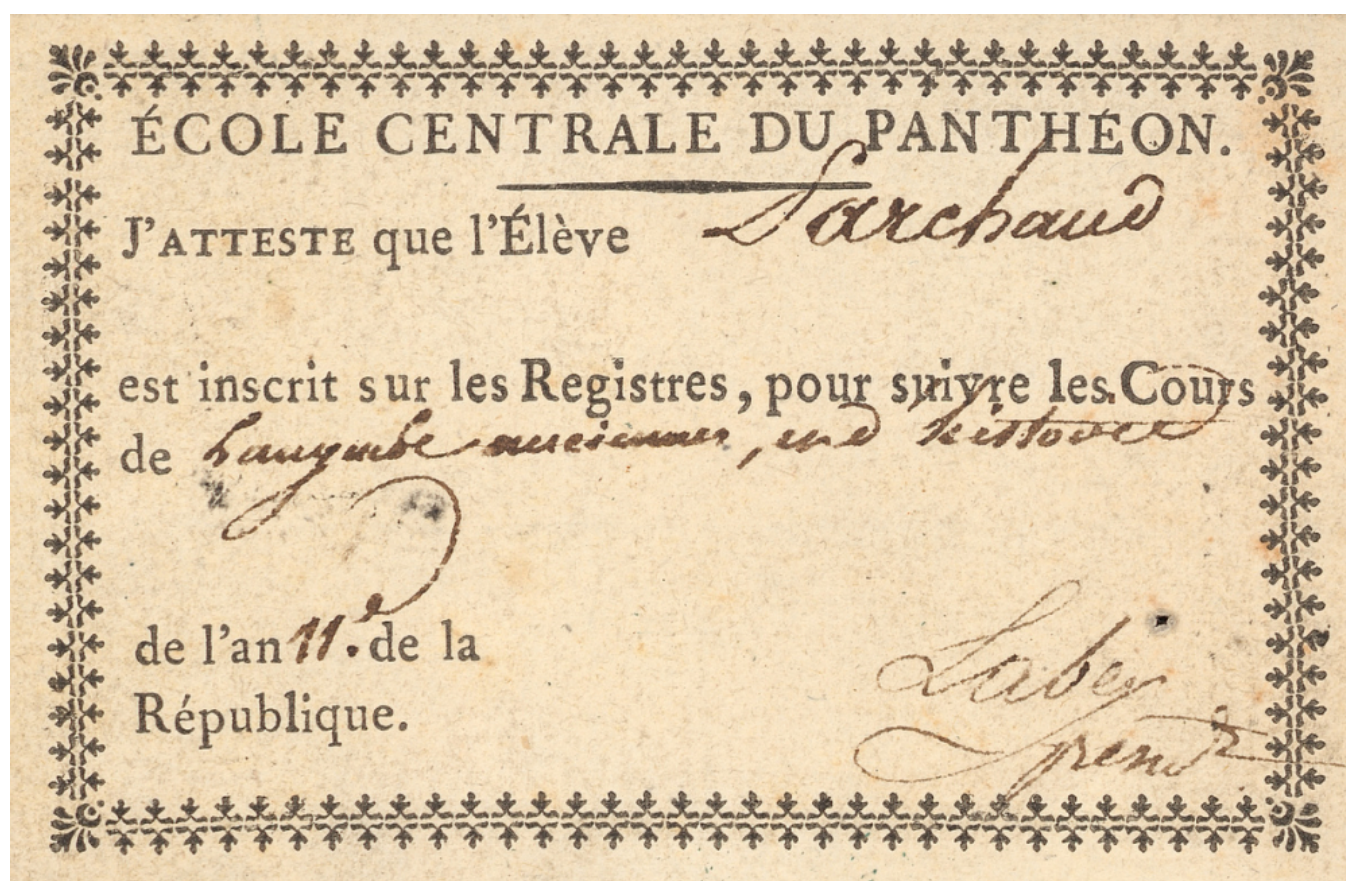 ÉCOLE CENTRALE DU PANTHÉON.
J'ATTESTE que l'Élève Larchaud
est inscrit sur les Registres, pour suivre les Cours
de anciennes, histoire
de l'an 11e. de la
République.
Labey